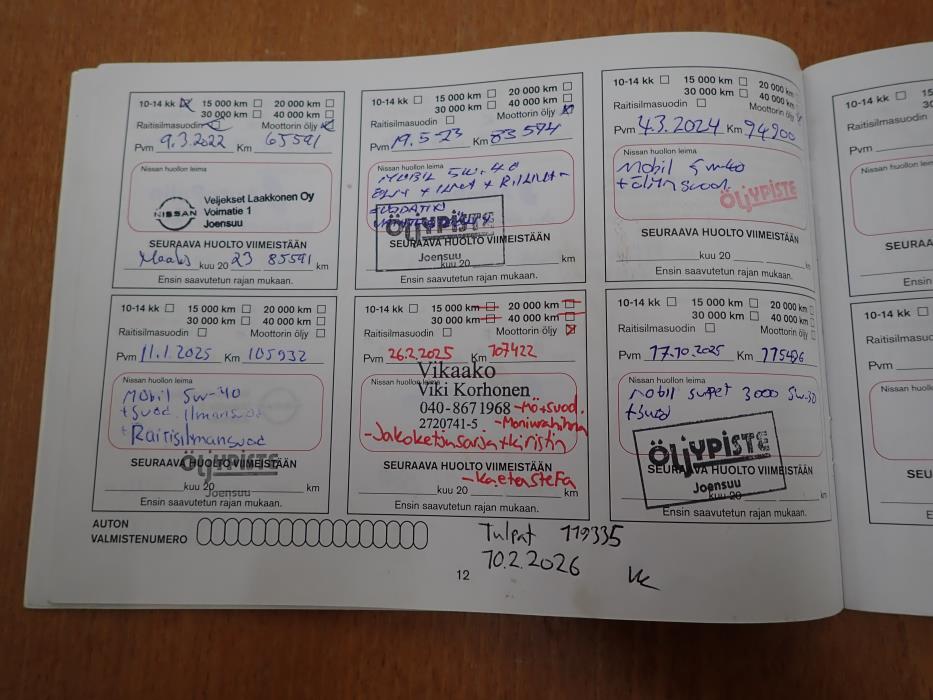 10-14 kk 15 000 km 20 000 km
30 000 km 40 000 km
Raitisilmasuodin Moottorin öljy
Pvm 9.3.2022 Km 65591
Nissan huollon leima
NISSAN
Veljekset Laakkonen Oy
Voimatie 1
Joensuu
SEURAAVA HUOLTO VIIMEISTÄÄN
Maalis kuu 20 23 85591 km
Ensin saavutetun rajan mukaan.
10-14 kk 15 000 km 20 000 km
30 000 km 40 000 km
Raitisilmasuodin Moottorin öljy
Pvm 19.5-23 Km 83594
Nissan huollon leima
MOBIL 5W-40
ÖLJYPISTE
SEURAAVA HUOLTO VIIMEISTÄÄN
Joensuu
kuu 20 km
Ensin saavutetun rajan mukaan.
10-14 kk 15 000 km 20 000 km
30 000 km 40 000 km
Raitisilmasuodin Moottorin öljy
Pvm 4.3.2024 Km 94900
Nissan huollon leima
Mobil 5w-40
ÖLJYPISTE
SEURAAVA HUOLTO VIIMEISTÄÄN
kuu 20 km
Ensin saavutetun rajan mukaan.
10-14 kk 15 000 km 20 000 km
30 000 km 40 000 km
Raitisilmasuodin Moottorin öljy
Pvm 11.1.2025 Km 105932
Nissan huollon leima
Mobil 5w-40
+suod. ilmansuod
+Raitisilmansuod
ÖLJYPISTE
SEURAAVA HUOLTO VIIMEISTÄÄN
Joensuu
kuu 20 km
Ensin saavutetun rajan mukaan.
10-14 kk 15 000 km 20 000 km
30 000 km 40 000 km
Raitisilmasuodin Moottorin öljy
Pvm 26.2.2025 Km 107422
Nissan huollon leima
Vikaako
Viki Korhonen
040-8671968 -Mö+suod.
2720741-5 -Moniurahihna
-Jakoketjunsarja+kiristin
SEURAAVA HUOLTO VIIMEISTÄÄN
kuu 20 km
Ensin saavutetun rajan mukaan.
10-14 kk 15 000 km 20 000 km
30 000 km 40 000 km
Raitisilmasuodin Moottorin öljy
Pvm 17.10.2025 Km 115426
Nissan huollon leima
Mobil super 3000 5w-30
+suod
ÖLJYPISTE
SEURAAVA HUOLTO VIIMEISTÄÄN
Joensuu
kuu 20 km
Ensin saavutetun rajan mukaan.
AUTON
VALMISTENUMERO
Tulpat 119335
10.2.2026 VK
12
10-14 kk
Raitisilmasuodin
Pvm
Nissan huollon
SEURAA
Ensin
10-14 kk
Raitisilmasuodin
Pvm
Nissan huoll
SEU
En